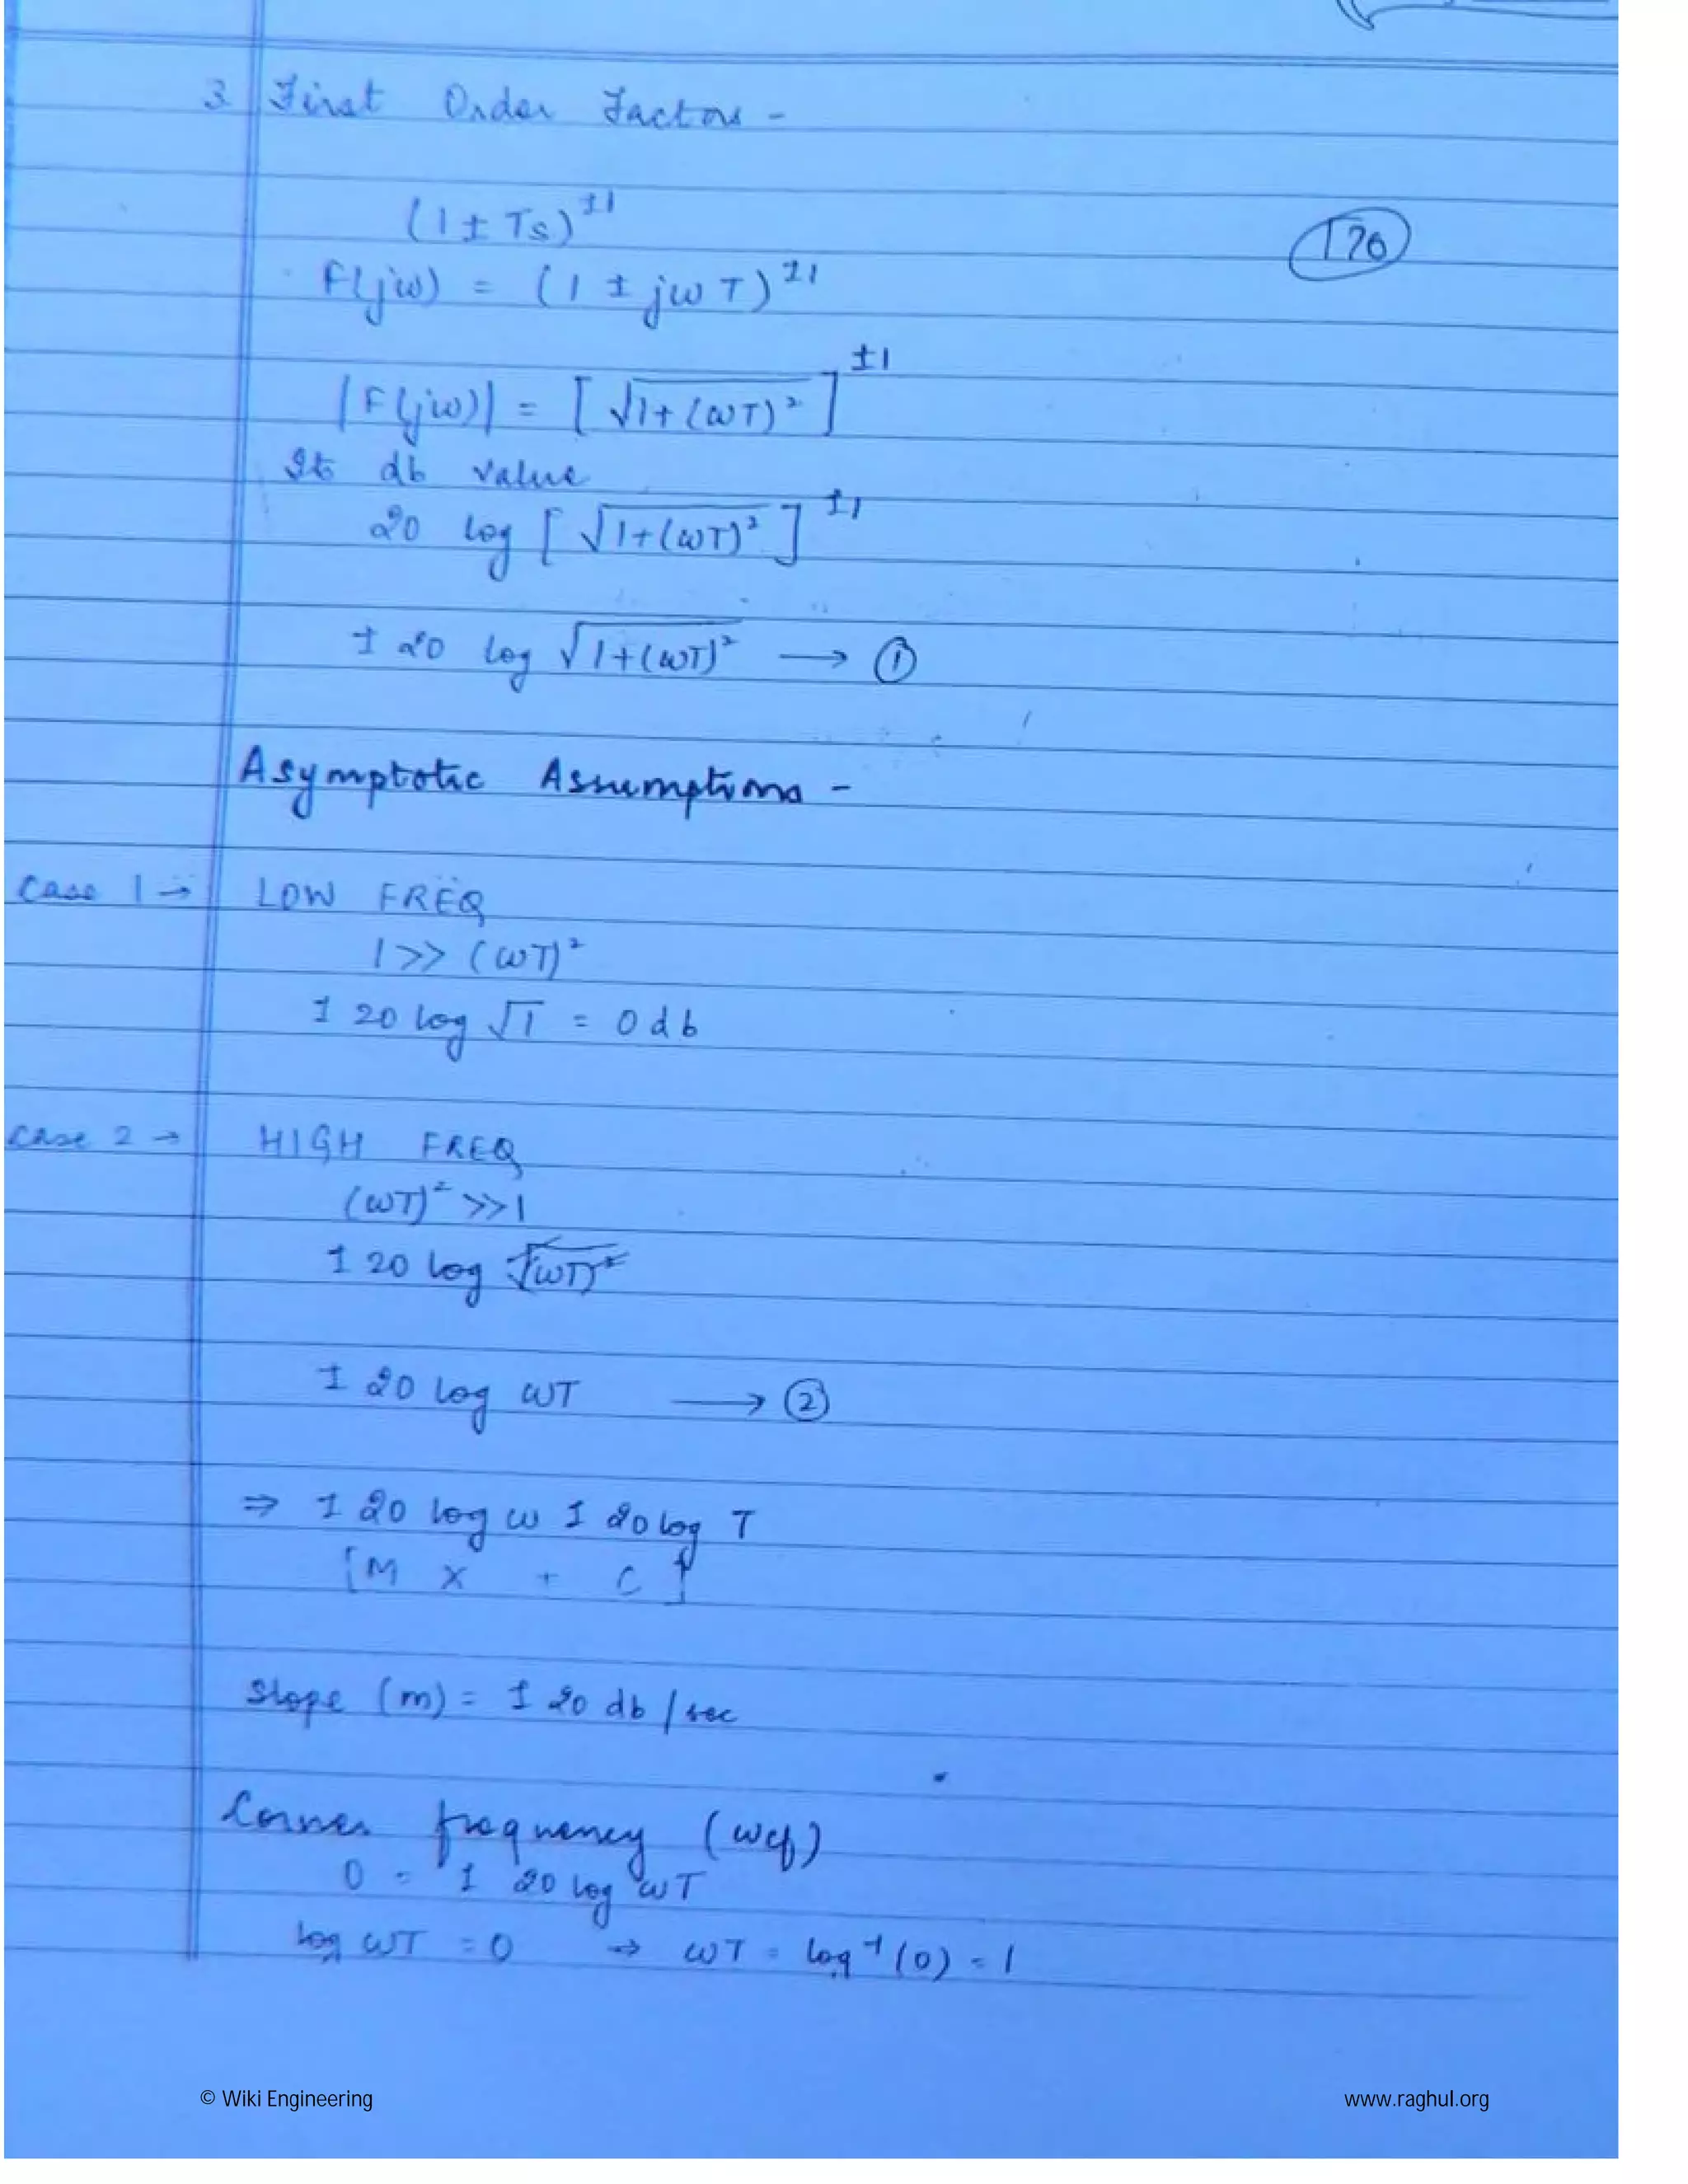 3. First Order Factors -
(1 ± Ts)^±1
170
F(jω) = (1 ± jωT)^±1
|F(jω)| = [√1+(ωT)²]^±1
Its db value
20 log [√1+(ωT)²]^±1
± 20 log √1+(ωT)² → ①
Asymptotic Assumptions -
Case 1 → LOW FREQ
1 >> (ωT)²
± 20 log √1 = 0 db
Case 2 → HIGH FREQ
(ωT)² >> 1
± 20 log √(ωT)²
± 20 log ωT → ②
⇒ ± 20 log ω ± 20 log T
[M X + C]
Slope (m) = ± 20 db/sec
Corner frequency (ωcf)
0 = ± 20 log ωT
log ωT = 0 → ωT = log⁻¹(0) = 1
© Wiki Engineering www.raghul.org